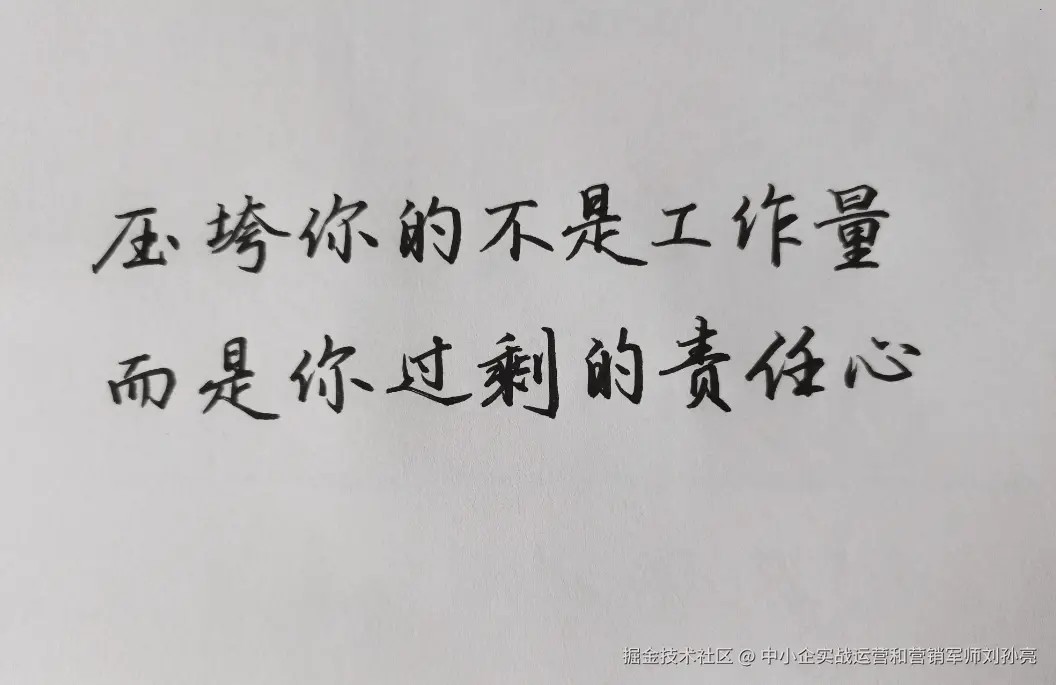 压垮你的不是工作量
而是你过剩的责任心
掘金技术社区 @ 中小企实战运营和营销军师刘孙亮